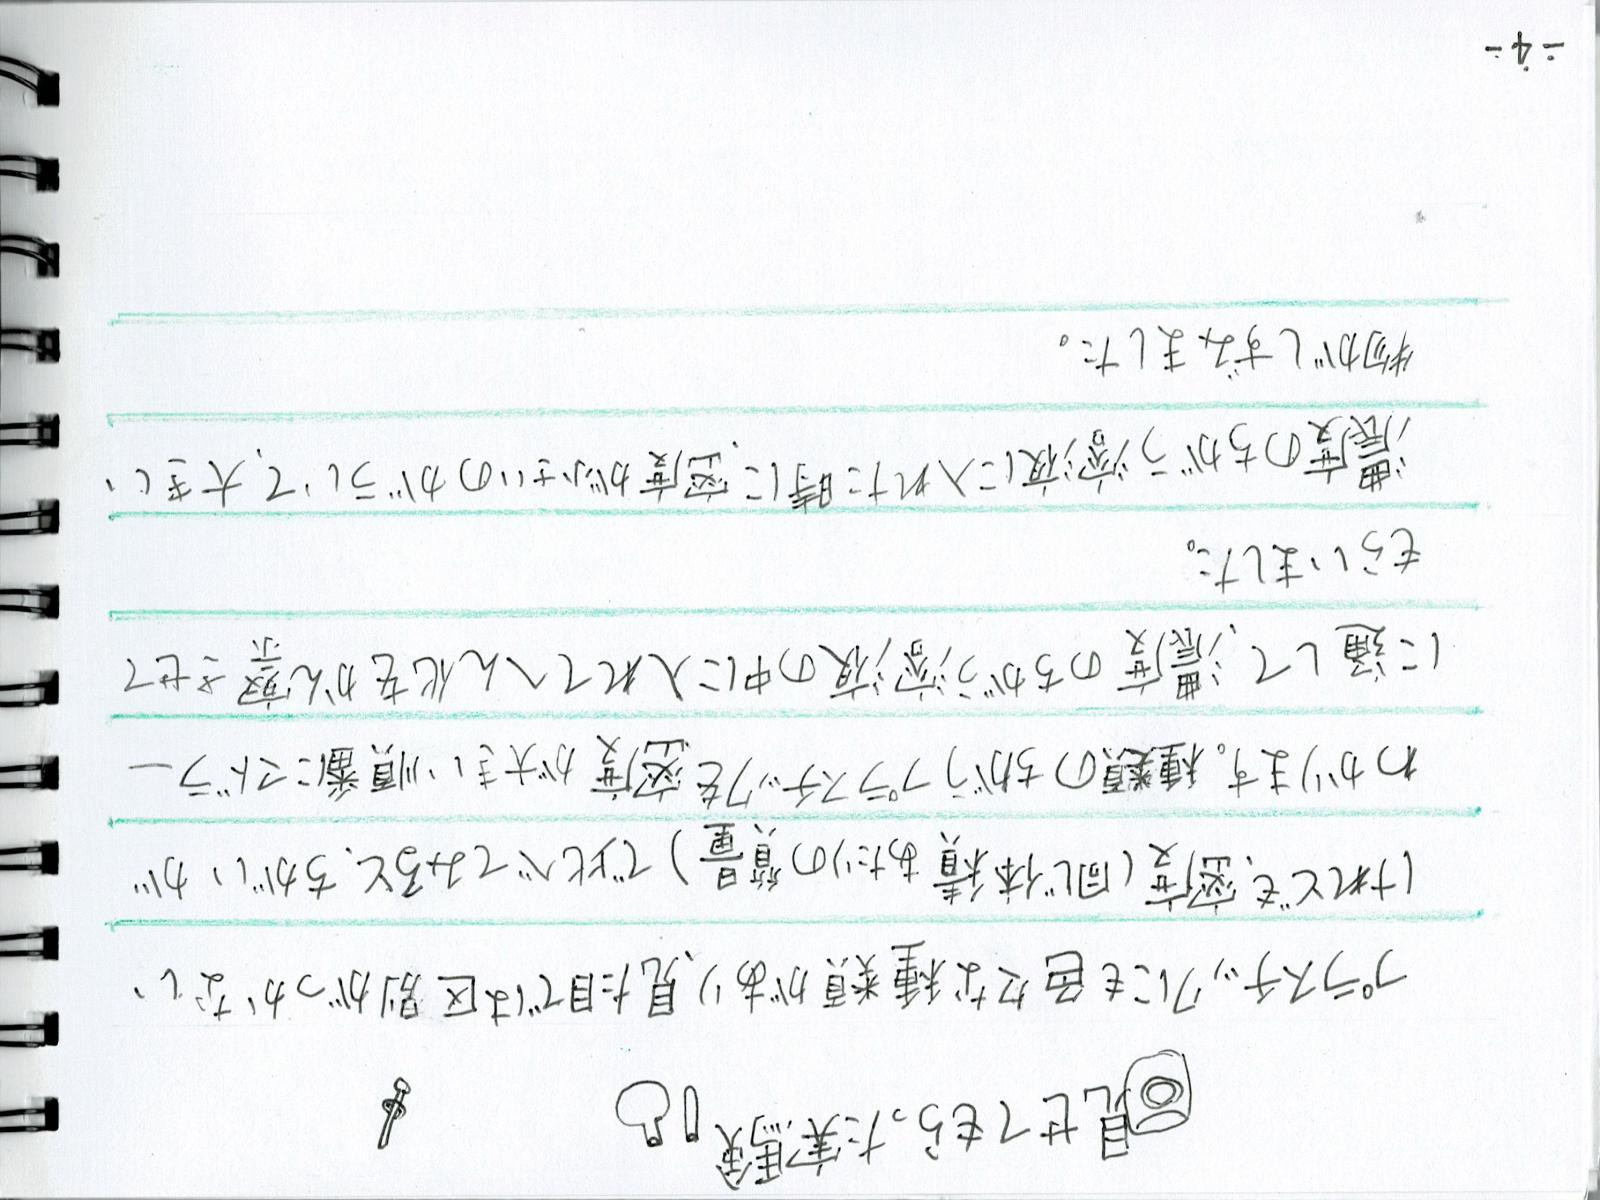 見せてもらった実験
プラスチックにも色々な種類があり、見た目では区別がつかない
けれども、密度(同じ体積あたりの質量)で比べてみると、ちがいが
わかります。種類のちがうプラスチックを密度が大きい順番にストロー
に通して、濃度のちがう溶液の中に入れてへん化をかん察させて
もらいました。
濃度のちがう溶液に入れた時に、密度が小さいのがういて、大きい
物がしずみました。
-4-